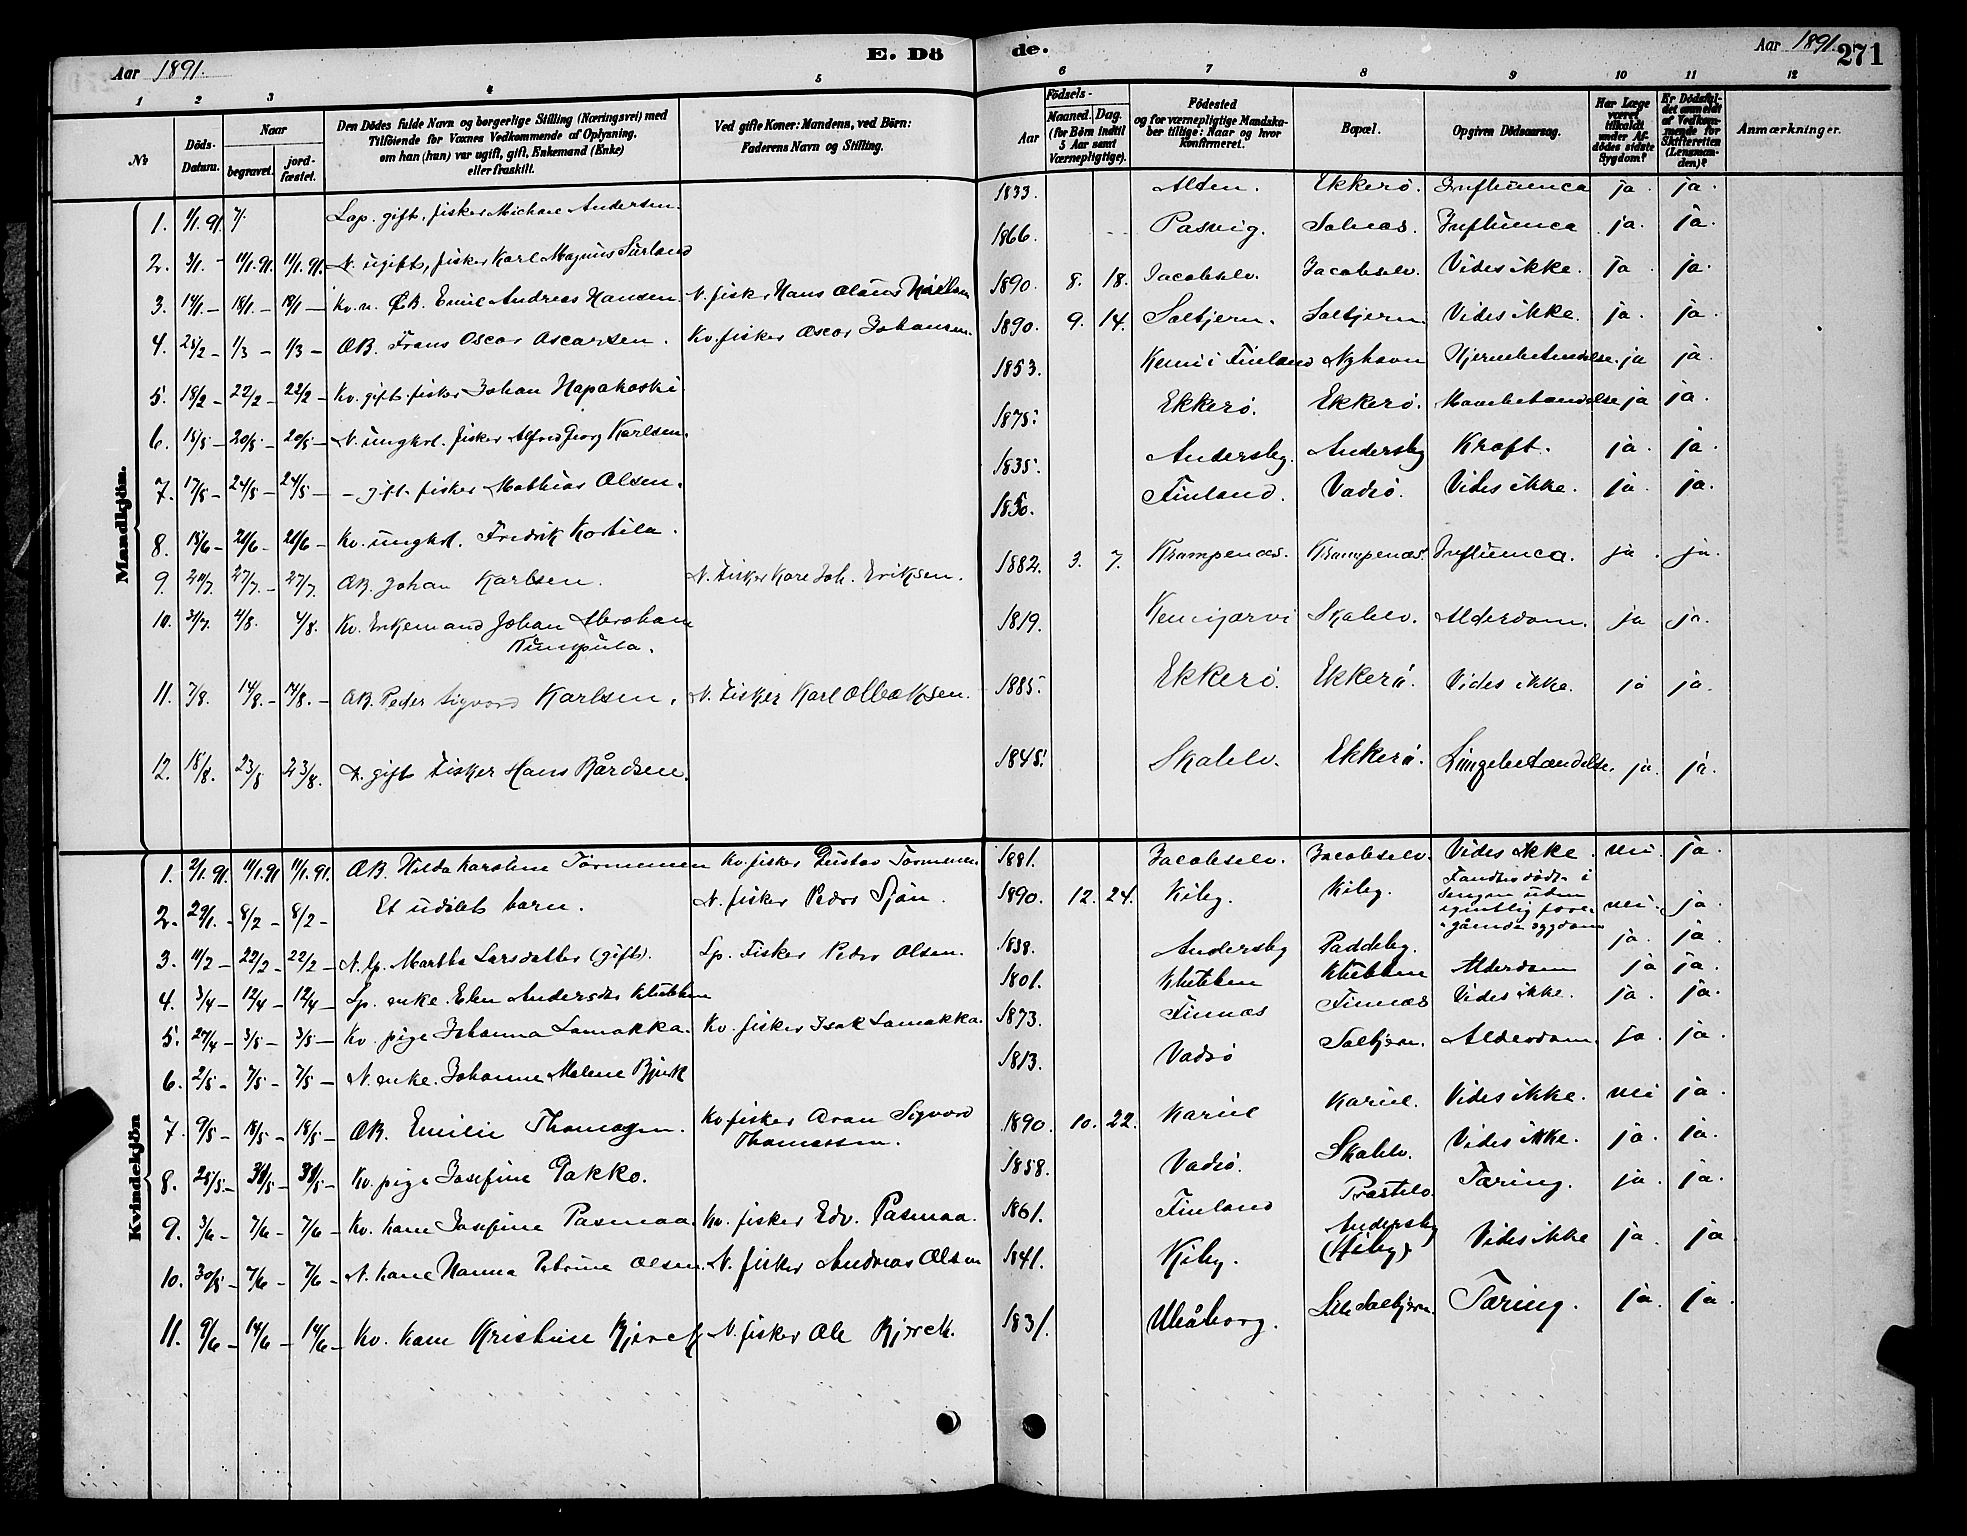 Aar 1891. E. Dö de. Aar 1891. 271
1 2 3 4 5 6 7 8 9 10 11 12
№
Döds-Datum.
Naar begravet. jordfæstet.
Den Dödes fulde Navn og borgerlige Stilling (Næringsvei) med
Tilföiende for Voxnes Vedkommende af Oplysning,
om han (hun) var ugift, gift, Enkemand (Enke)
eller fraskilt.
Ved gifte Koner: Mandens, ved Börn:
Faderens Navn og Stilling.
Födsels-
Aar Maaned. Dag. (for Börn indtil 5 Aar samt Værnepligtige).
Födested og for værnepligtige Mandskaber tillige: Naar og hvor konfirmeret.
Bopæl.
Opgiven Dödsaarsag.
Har Læge været tilkaldt under Afdödes sidste Sygdom?
Er Dödsfaldet anmeldt af Vedkommende for Skifteretten (Lensmanden)?
Anmærkninger.
Mandkjön.
1. 1/1. 91. 7. Lap. gift, fisker Michael Andersen. 1833. Alden. Ekkerö. Influenca ja. ja.
2. 3/1. - 11/1. 91. 11/1. 91. N. ugift, fisker Karl Magnus 1866. Pasvig. Salnæs. Influenca ja. ja.
3. 14/1 - 18/1 - 18/1 - Kv. n. ÆB. Emil Andreas Hansen. N. fisk. Hans Olaus 1890. 8. 18. Jacobselv. Jacobselv. Vides ikke. ja. ja.
4. 25/2 - 1/3 - 1/3 - ÆB. Frans Oscar Oscarsen. Kv. fisker Oscar Johansen. 1890. 9. 14. Salbjern. Salbjern. Vides ikke. ja. ja.
5. 18/2 - 22/2 - 22/2 - Kv. gift. fisker Johan Hapakoski 1853. Kemi i Finland Nyhavn Hjernebetændelse. ja ja.
6. 15/5 - 20/5 - 20/5 - N. ungkrl. fisker Alfred Georg Karlsen. 1875. Ekkerö. Ekkerö. Mavebetændelse ja ja.
7. 17/5 - 24/5 - 24/5 - - gift. fisker Mathias Olsen. 1835. Andersby. Andersby Kræft. ja. ja.
8. 15/6 - 20/6 - 20/6 - Kv. ungkrl. Fredrik Kortila. 1850. Finland. Vadsö. Vides ikke. ja. ja.
9. 20/7. 27/7. - 27/7. ÆB. Johan Karlsen. N. Fisker Karl Joh. Eriksen. 1882. 3. 7. Krampenæs. Krampenæs. Influenca. ja. ja.
10. 31/7. 4/8. 4/8. Kv. Enkemand Johan Abraham
Kumpula. 1819. Kemijærvi Skalelv. Alderdom. ja ja.
11. 7/8. 14/8. - 14/8. - ÆB. Peder Sigvard Karlsen. N. Fisker Karl 1885. Ekkerö. Ekkerö. Vides ikke. ja ja.
12. 18/8. 23/8 23/8. N. gift Fisker Hans Bårdsen. 1845. Skalelv. Ekkerö. Lungebetændelse. ja. ja.
Kvindekjön
1. 2/1. 91. 11/1. 91 11/1. 91. ÆB. Hilda Karoline Tormenen Kv. fisker Gustav Tormenen. 1881. Jacobselv. Jacobselv. Vides ikke. nei. ja.
2. 29/1. - 8/2 - 8/2 - Et udöbt barn. N. fisker Peder Sjön. 1890. 12. 24. Kiby. Kiby. Fandtes död i
sengen uden
egentlig fore-
gående sygdom nei. ja.
3. 11/2 - 22/2 - 22/2 - N. lp. Martha Larsdatter (gift). Lp. Fisker Peder Olsen. 1838. Andersby Paddeby. ja. ja.
4. 3/4 - 12/4 - 12/4 - Lp. enke. Elen Andersdtr Klubben 1801. Klubben Klubben Alderdom ja ja.
5. 27/4 - 3/5 - 3/5 - Kv. pige Johanna Lamakka. Kv. fisker Isak Lamakka. 1873. Finnæs Finnæs Vides ikke. ja. ja.
6. 2/5 - 7/5 - 7/5 - N. enke. Johanne Malene Bjerk 1813. Vadsö Salbjern. Alderdom. ja. ja.
7. 9/5 - 18/5 - 18/5 - ÆB. Emilie Thomassen. Kv fisker Aron Sigvard
Thomassen. 1890. 10. 22. Kariel Kariel. Vides ikke. nei ja.
8. 25/5. - 31/5 - 31/5 - Kv. pige Josefine Pakko. 1858. Vadsö. Skalelv. Vides ikke. ja. ja.
9. 3/6 - 7/6 - 7/6 - Kv. kone Josefine Pasmaa. Kv. fisker Edv. Pasmaa. 1861. Finland Præstelv. Tæring. ja. ja.
10. 30/5 - 7/6 - 7/6 - N. kone Hanna Petrine Olsen. N. fisker Andreas Olsen 1841. Kiby. Andersby
(Kiby). Vides ikke ja. ja
11. 9/6 - 14/6 - 14/6 - Kv. kone Kristine Bjerck N. fisker Ole Bjerck. 1831. Uleåborg. Lille Salbjern. Tæring. ja. ja.